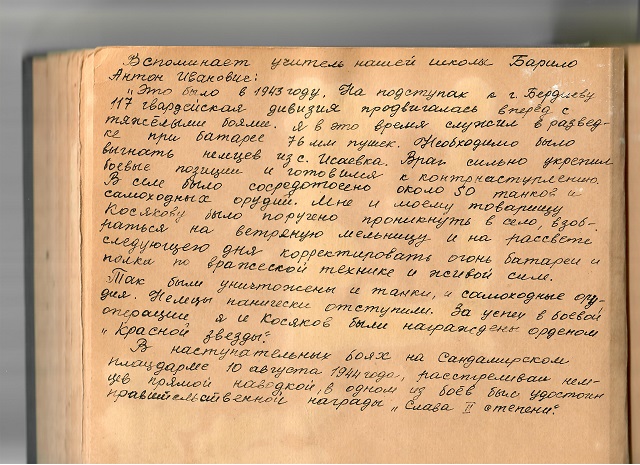 Вспоминает учитель нашей школы Барило
Антон Иванович:
"Это было в 1943 году. На подступах к г. Бердичеву
117 гвардейская дивизия продвигалась вперёд с
тяжёлыми боями. Я в это время служил в развед-
ке при батарее 76 мм пушек. Необходимо было
выгнать немцев из с. Исаевка. Враг сильно укрепил
боевые позиции и готовился к контрнаступлению.
В селе было сосредоточено около 50 танков и
самоходных орудий. Мне и моему товарищу
Косякову было поручено проникнуть в село, взоб-
раться на ветряную мельницу и на рассвете
следующего дня корректировать огонь батареи и
полка по вражеской технике и живой силе.
Так были уничтожены и танки, и самоходные ору-
дия. Немцы панически отступили. За успех в боевой
операции я и Косяков были награждены орденом
"Красной звезды".
В наступательных боях на Сандомирском
плацдарме 10 августа 1944 года, расстреливая нем-
цев прямой наводкой, в одном из боёв был удостоен
правительственной награды "Слава II степени".